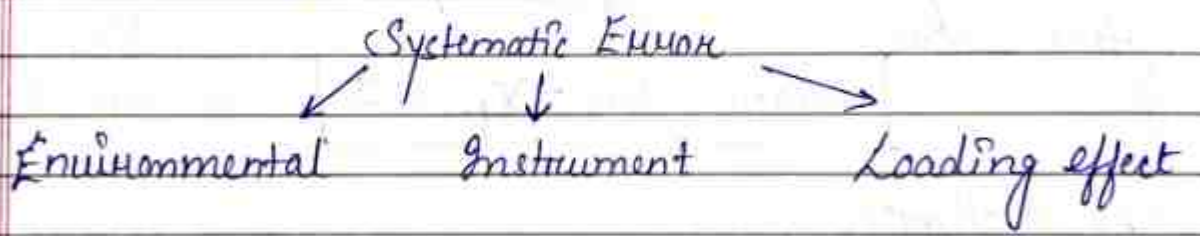 Systematic Error
Environmental Instrument Loading effect